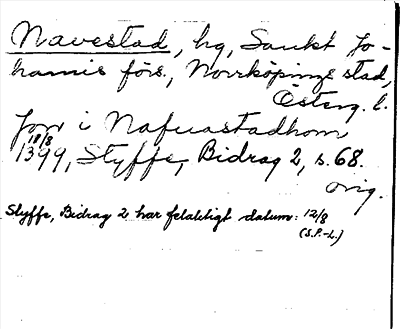 Navestad, hg, Sankt Jo-
hannis förs., Norrköpings stad,
Österg. l.
Jon i Nafuastadhom
18/8
1399, Styffe, Bidrag 2, s. 68.
orig.
Styffe, Bidrag 2 har felaktigt datum: 12/8
(S.P.-L.)